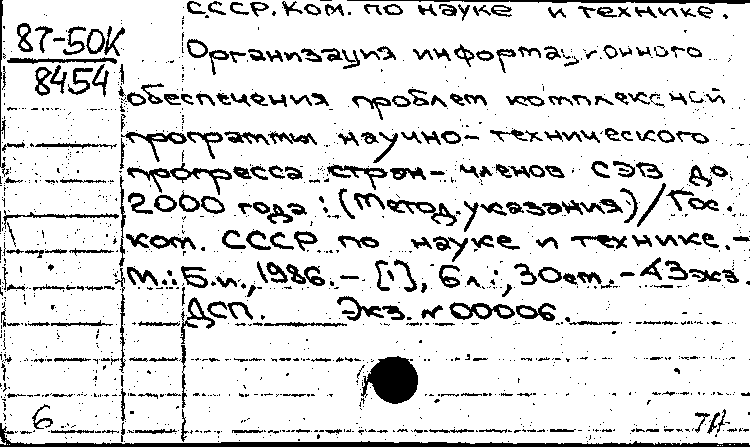 СССР. Ком. по науке и технике.
87-50К
8454
Организация информационного
обеспечения проблем комплексной
программы научно-технического
прогресса стран-членов СЭВ до
2000 года: (Метод. указания) / Гос.
ком. СССР по науке и технике. -
М.: Б.и., 1986. - [1], 6 л.; 30 см. -
ДСП. Экз. № 00006.
6